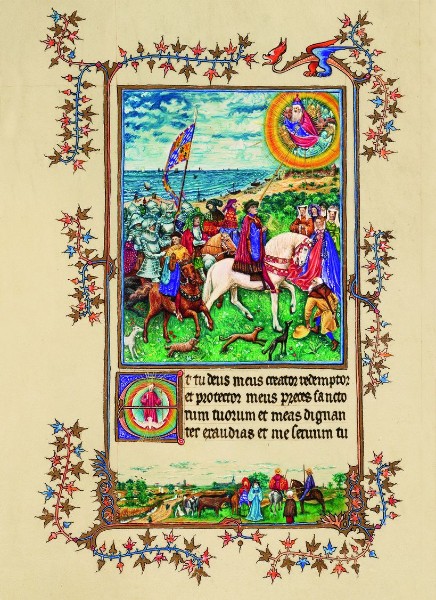 Et tu deus meus creator redemptor
et protector meus preces sancto
rum tuorum et meas dignan
ter exaudias et me seruum tu